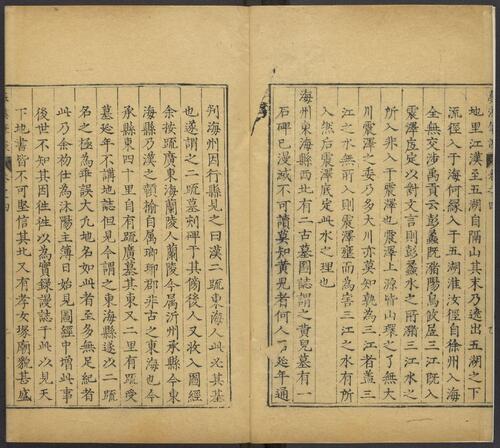 地里江漢至五湖自隔山其末乃遶出五湖之下
流徑入于海何緣入于五湖淮汝徑自徐州入海
全無交涉禹貢云彭蠡既瀦陽鳥攸居三江既入
震澤底定以對文言則彭蠡水之所瀦三江水之
所入非入于震澤也震澤上源皆山環之了無大
川震澤之委乃多大川亦莫知孰為三江者蓋三
江之水無所入則震澤壅而為害三江之水有所
入然後震澤底定此水之理也
海州東海縣西北有二古墓圖誌謂之黃兒墓有一
石碑已漫滅不可讀莫知黃兒者何人石延年通
判海州因行縣見之曰漢二疏東海人此必其墓
也遂謂之二疏墓刻碑于其傍後人又收入圖經
余按疏廣東海蘭陵人蘭陵今屬沂州承縣今東
海縣乃漢之贛榆自屬琅琊郡非古之東海也今
承縣東四十里自有疏廣墓其東又二里有疏受
墓延年不講地誌但見今謂之東海縣遂以二疏
名之極為乖誤大凡地名如此者至多無足紀者
此乃余初仕為沭陽主簿日始見圖經中增此事
後世不知其因往往以為實錄謾誌于此以見天
下地書皆不可堅信其北又有孝女塚廟貌甚盛